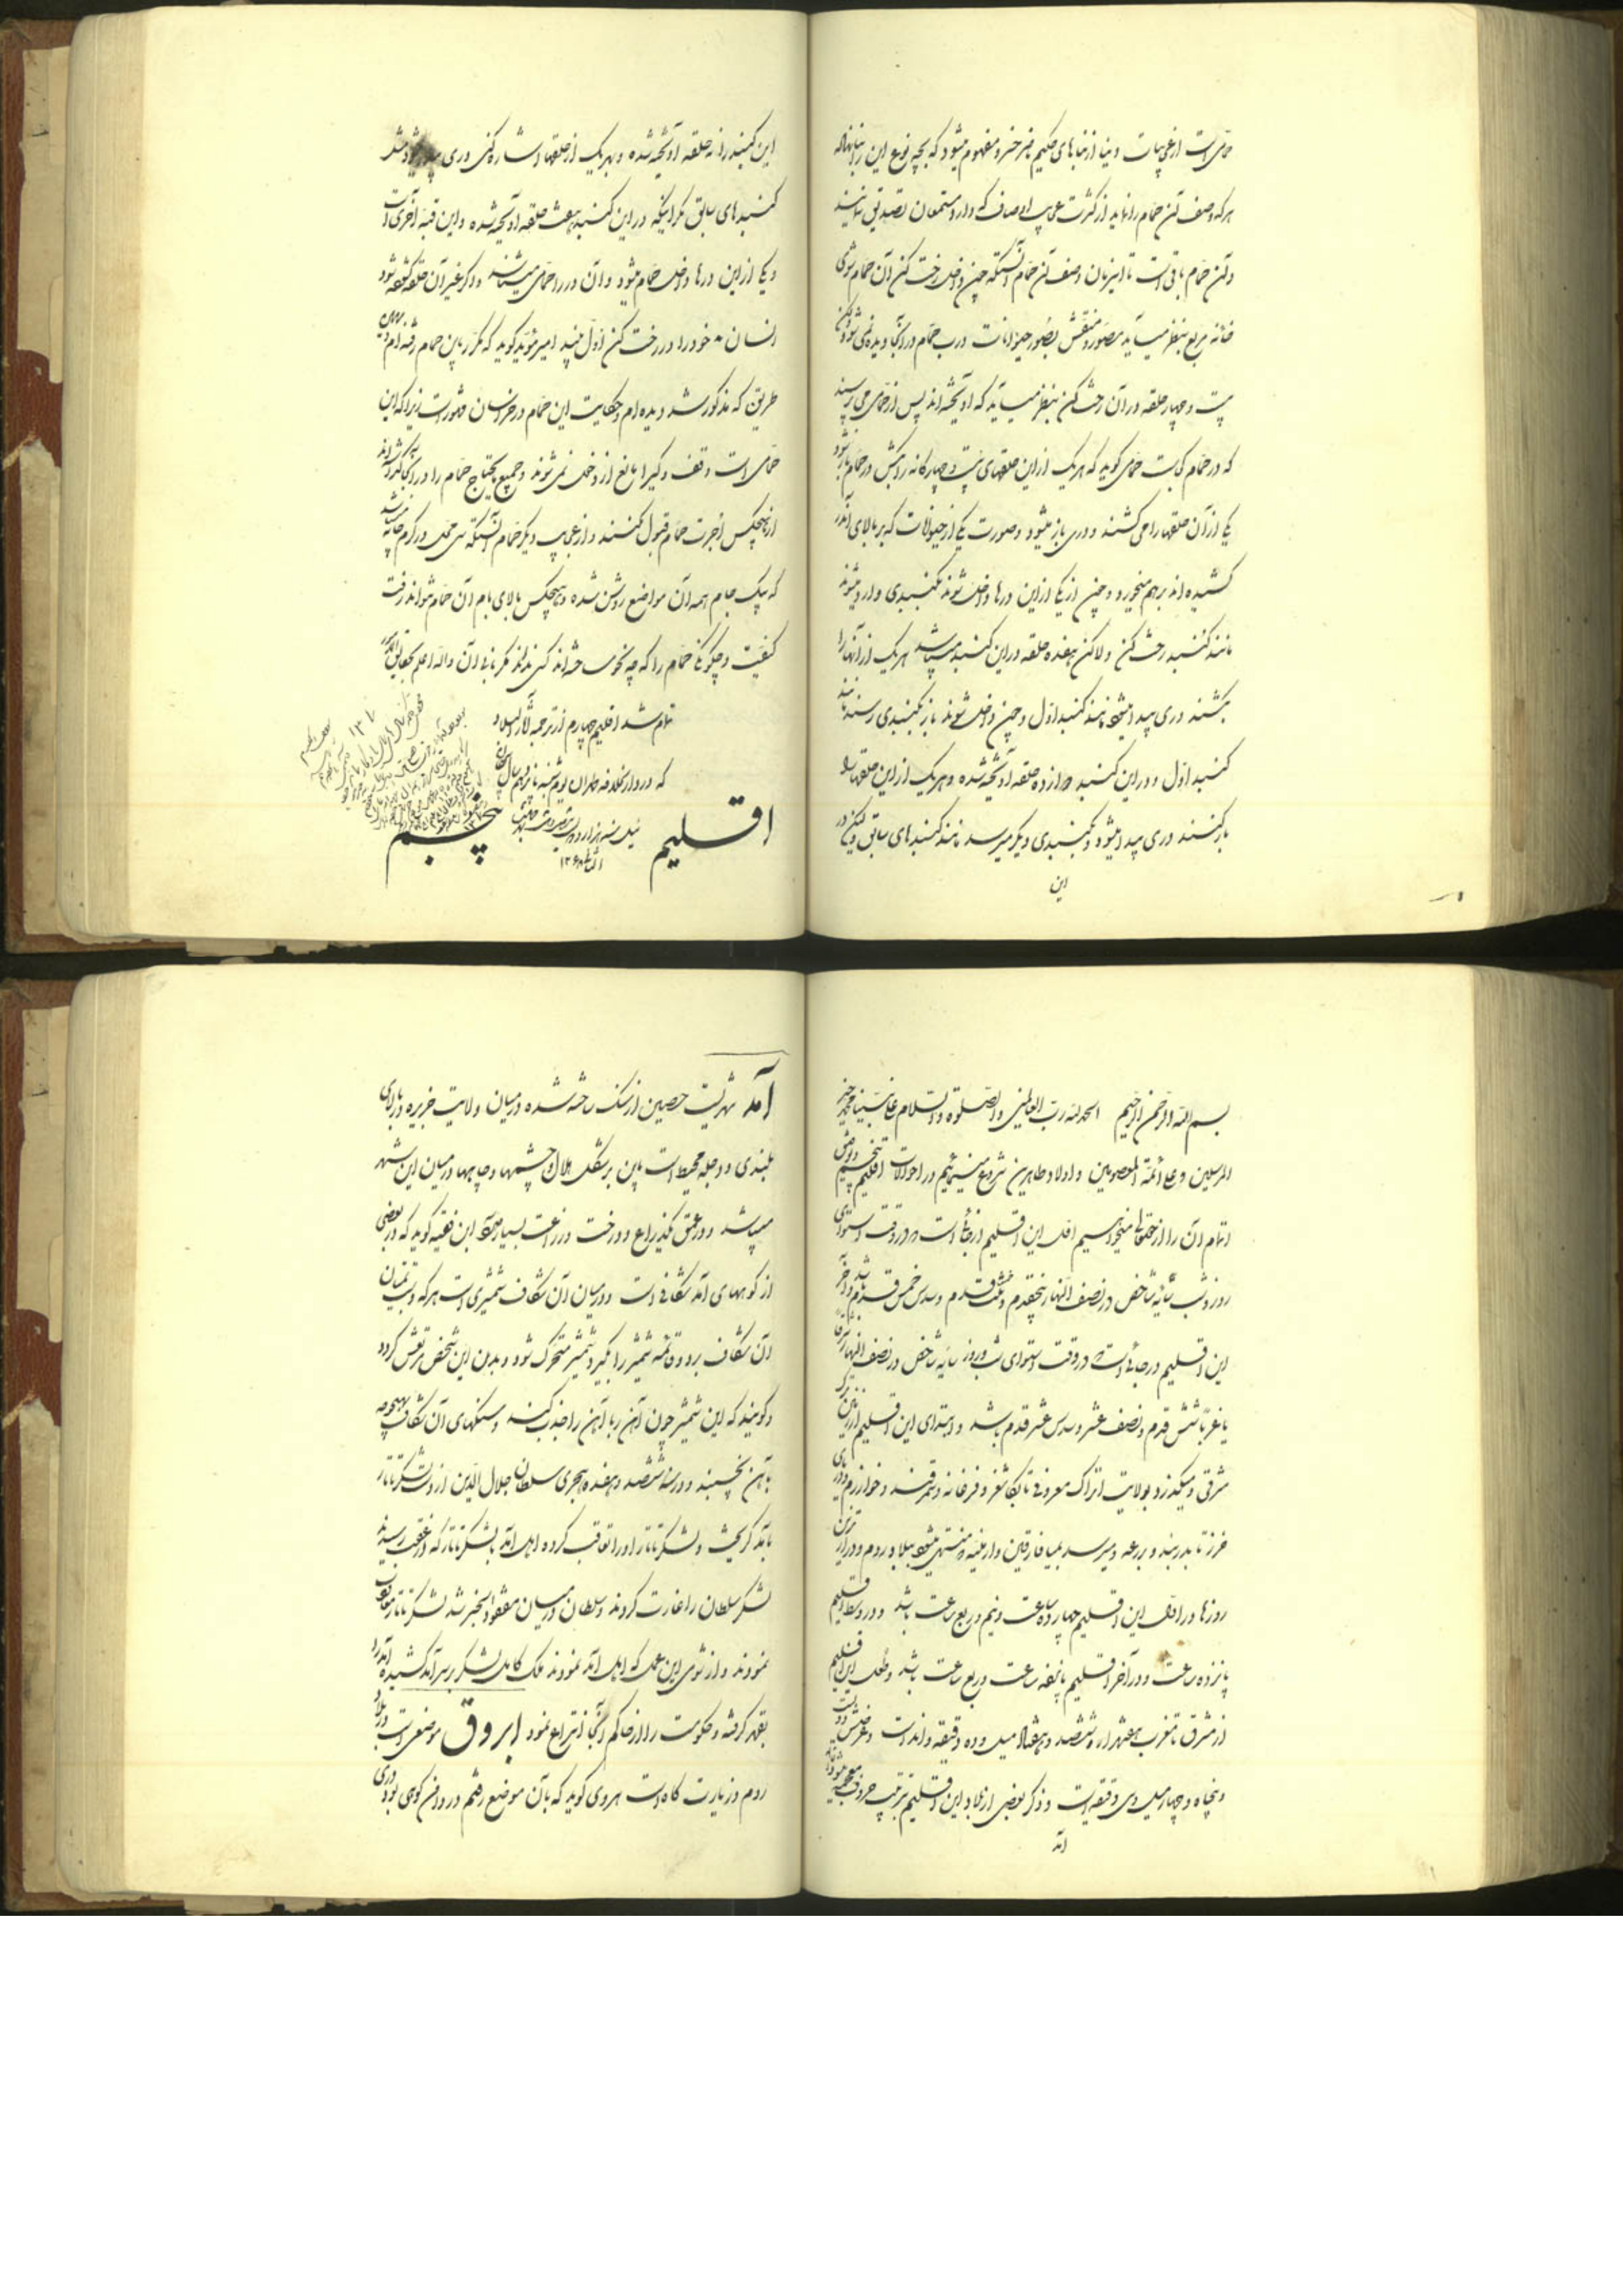 حمامی است از عجایبات و بنا از بناهای حکیم هنر خسرو مفهوم میشود که بچه نوع این را بنا نهاده
هر که وصف آن حمام را نماید از کثرت عجایب اوصاف که دارد مستمعان تصدیق ننمایند
و آن حمام باقی است تا این زمان وصف آن حمام آنستکه چون داخل رخت کن آن حمام شوی
خانه مربع بنظر میآید مصور و منقش بصور حیوانات درب حمام در آنجا دیده نمی شود
بیست و چهار حلقه در آن رخت کن بنظر میآید که آویخته اند پس از حمامی می پرسند
که در حمام کجاست حمامی گوید که هر یک از این حلقهای بیست و چهارگانه را بکش در حمام باز شود
یکی از آن حلقها را می کشند و دری باز میشود و صورت یکی از حیوانات که بر بالای آن در
کشیده اند برهم میخورد و چون از یکی از این درها داخل شوند بگنبدی وارد میشوند
مانند گنبد رخت کن ولاکن هفده حلقه در این گنبد میباشد هر یک از آنها را
بکشند دری پیدا میشود مانند گنبد اول و چون داخل شوند باز بگنبدی رسند مانند
گنبد اول و در این گنبد دوازده حلقه آویخته شده و هر یک از این حلقها را
باز کنند دری پیدا میشود و بگنبدی دیگر میرسد مانند گنبدهای سابق ولیکن در
این
این گنبد را نه حلقه آویخته شده و بهر یک از حلقها اشاره کنی دری پیدا میشود مثل
گنبدهای سابق مگر اینکه در این گنبد هشت حلقه آویخته شده و این قبه آخری است
و یکی از این درها داخل حمام میشود و آن در را حمامی میشناسد و اگر غیر آن حلقه کشیده شود
انسان خود را در رخت کن اول بیند امیر مؤید گوید که مکرر باین حمام رفته ام و بهمین
طریق که مذکور شد دیده ام و حکایت این حمام در خراسان مشهور است زیرا که این
حمامی است وقف و کسی را مانع از دخول نمی شوند و جمیع مایحتاج حمام را در آنجا گذاشته اند
از هیچکس اجرت حمام قبول نکنند و از عجایب دیگر حمام آنستکه سی محل در گرم خانه میباشد
که بیک جام همه آن مواضع روشن شده و هیچکس بالای بام آن حمام نتواند رفت
کیفیت و چگونگی حمام را که چه نحو ساخته اند کسی نداند مگر بانی آن والله اعلم بحقایق الامور
تمام شد اقلیم چهارم از ترجمه آثار البلاد
که در دارالخلافه طهران یوم شنبه پانزدهم
اقلیم
پنجم
۱۲۶۸
بسم الله الرحمن الرحیم الحمد لله رب العالمین والصلوة والسلام علی نبینا محمد خیر
المرسلین و علی ائمة المعصومین و اولاد طاهرین شروع مینمائیم در احوالات اقلیم پنجم و توفیق
اتمام آن را از حقتعالی میخواهیم اول این اقلیم از جائی است که در وقت استوای
روز و شب سایه شاخص در نصف النهار پنجقدم و ثلث قدم و سدس خمس قدم باشد و آخر
این اقلیم در جائی است که در وقت استوای شب و روز سایه شاخص در نصف النهار آن
شش قدم و نصف عشر و سدس عشر قدم باشد و ابتدای این اقلیم از زمین ترک
مشرقی و میگذرد بولایت اتراک معروفه تا بکاشغر و فرغانه و سمرقند و خوارزم و دریای
خزر تا بدربند و بردعه و میرسد بمیافارقین و ارمنیه و منتهی میشود ببلاد روم و درازترین
روزها در اول این اقلیم چهارده ساعت و نیم و ربع ساعت باشد و در وسط اقلیم
پانزده ساعت و در آخر اقلیم پانزده ساعت و ربع ساعت باشد و طول این اقلیم
از مشرق تا مغرب هفتهزار و ششصد و هفتاد میل و ده دقیقه و اند است و عرضش دویست
و پنجاه و چهار میل و سی دقیقه است و ذکر بعضی از بلاد این اقلیم بترتیب حروف معجم میشود
آمد
آمد شهریست حصین از سنگ ساخته شده در میان ولایت جزیره در بالای
بلندی و دجله محیط است باین بر شکل هلال و چشمها و چاهها در میان این شهر
میباشد و در عمق یکذراع و درخت و زراعت بسیار دارد ابن فقیه گوید که در بعضی
از کوههای آمد شکافی است و در میان آن شکاف شمشیری است هر که دست بمیان
آن شکاف برد و قائمه شمشیر را بگیرد شمشیر متحرک شود و بدن این شخص مرتعش گردد
و گویند که این شمشیر چون آهن ربا آهن را جذب کند و سنگهای آن شکاف بهیچوجه
بآهن نچسبند و در سنه ششصد و هفده هجری سلطان جلال الدین از دست لشکر تاتار
بآمد گریخت و لشکر تاتار او را تعاقب کرده اهل آمد بلشکر تاتار که در عقب رسیدند
لشکر سلطان را غارت کردند و سلطان در میان مفقود الخبر شد لشکر تاتار معاودت
نمودند و از شومی این عمل که اهل آمد نمودند ملک کامل لشکر بر سر آمد کشیده آمد را
بقهر گرفته و حکومت را از حاکم آنجا انتزاع نمود ابروق موضعی است در بلاد
روم و زیارت گاه است هروی گوید که بآن موضع رفتم در دامن کوهی بود دری